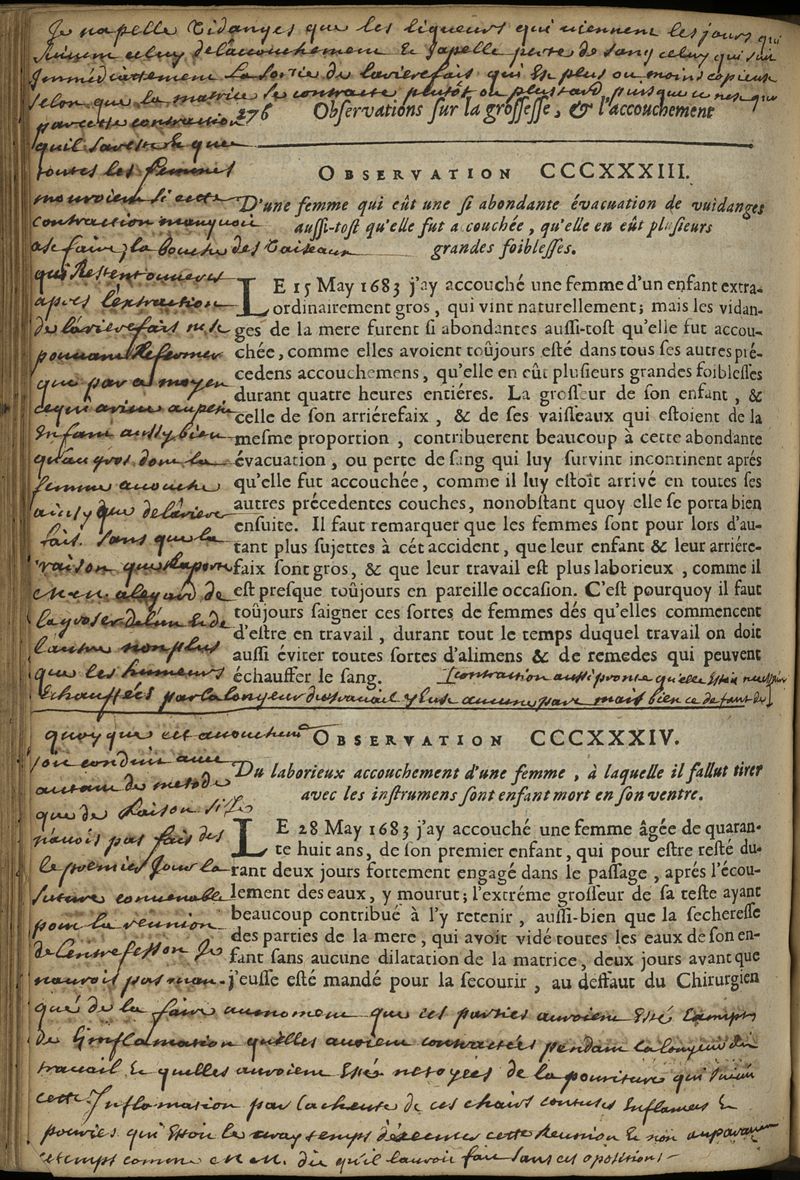 Je napelle Vidanges que les liqueurs qui viennent les jours qui
suivent celuy de lacouchement & japelle perte de sang celuy qui suit
Immediatement la sortie de larierefais qui Est plus ou moins copieuse
selon que la matrice se contracte plutôt ou plus tard, puisque ce nest que
par cette contraction
quil sareste & que
toutes les femmes
mouroient si cette
contraction manquoit
a se faire; la bouche des Vaiseaux
qui Restent ouverts
apres l'extraction
de larierefais ne se
pouvant Refermer
que par ce moyen
ce qui arive au petit
Enfant aussy bien
qu'au gros dont la
femme acouche
ainsy que de lariere
fais. sans que la
raison que Raporte
la groseur de l'un & de
l'autre non plus
que les humeurs
Echauffées par la longeur du travail y Eust aucune part mais bien ce defaut de
contraction aussi promte qu'elle
276 Observations sur la grossesse, & l'accouchement
OBSERVATION CCCXXXIII.
D'une femme qui eût une si abondante évacuation de vuidanges
aussi-tost qu'elle fut accouchée, qu'elle en eût plusieurs
grandes foiblesses.
LE 15 May 1683 j'ay accouché une femme d'un enfant extra-
ordinairement gros, qui vint naturellement; mais les vidan-
ges de la mere furent si abondantes aussi-tost qu'elle fut accou-
chée, comme elles avoient toûjours esté dans tous ses autres pré-
cedens accouchemens, qu'elle en eût plusieurs grandes foiblesses
durant quatre heures entiéres. La grosseur de son enfant, &
celle de son arriérefaix, & de ses vaisseaux qui estoient de la
mesme proportion, contribuerent beaucoup à cette abondante
évacuation, ou perte de sang qui luy survint incontinent aprés
qu'elle fut accouchée, comme il luy estoît arrivé en toutes ses
autres précedentes couches, nonobstant quoy elle se porta bien
ensuite. Il faut remarquer que les femmes sont pour lors d'au-
tant plus sujettes à cét accident, que leur enfant & leur arriére-
faix sont gros, & que leur travail est plus laborieux, comme il
est presque toûjours en pareille occasion. C'est pourquoy il faut
toûjours saigner ces sortes de femmes dés qu'elles commencent
d'estre en travail, durant tout le temps duquel travail on doit
aussi éviter toutes sortes d'alimens & de remedes qui peuvent
échauffer le sang.
OBSERVATION CCCXXXIV.
Du laborieux accouchement d'une femme, à laquelle il fallut tirer
avec les instrumens sont enfant mort en son ventre.
LE 28 May 1683 j'ay accouché une femme âgée de quaran-
te huit ans, de son premier enfant, qui pour estre resté du-
rant deux jours fortement engagé dans le passage, aprés l'écou-
lement des eaux, y mourut; l'extréme grosseur de sa teste ayant
beaucoup contribué à l'y retenir, aussi-bien que la secheresse
des parties de la mere, qui avoit vidé toutes les eaux de son en-
fant sans aucune dilatation de la matrice, deux jours avant que
j'eusse esté mandé pour la secourir, au deffaut du Chirurgien
quoy que cet acouchemt
soit conduit avec
autant de metode
que de Raison. si Je
n'avois pas fait des
le premier Jour la
suture convenable
pour la reunion
de l'entrefesson Je
naurois pas man-
qué de la faire au moment que ces parties auroient Esté
de Linflamation qu'elles avoient contractées pendant la longeur du
travail & quelles auroient Estés netoyées de la pouriture qui suivit
cette Inflamation par la cheute de ces chairs contuses Enflamées &
pouries qui Estoit le vray temps cette Reunion & non auparavant